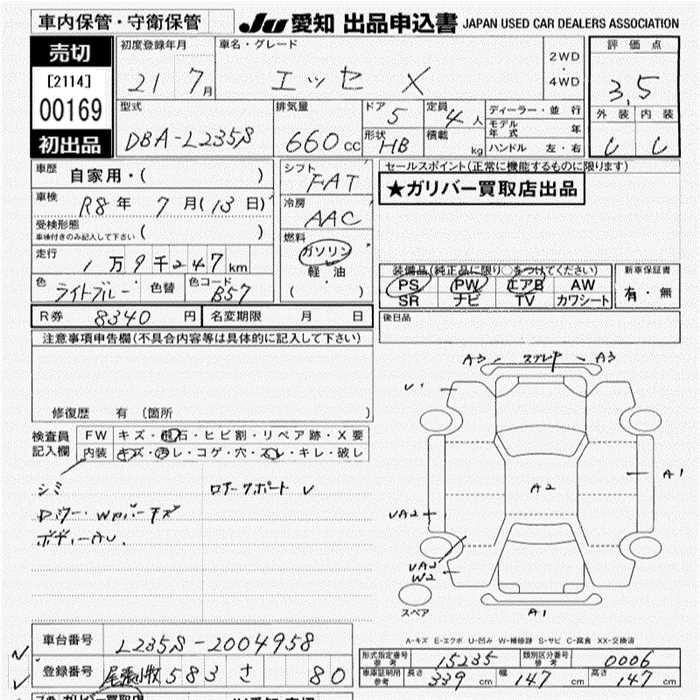 車内保管・守衛保管
JU 愛知 出品申込書 JAPAN USED CAR DEALERS ASSOCIATION
売切
[2114]
00169
初出品
初度登録年月 21 7月
車名・グレード エッセ X
2WD・4WD
評価点 3.5
外装 内装
型式 DBA-L235S
排気量 660cc
ドア 5
形状 HB
定員 4人
積載 kg
ディーラー・並行
モデル年式 年
ハンドル 左・右
車歴 自家用・( )
車検 R8年 7月(13日)
受検形態 ( )
車検付きのみ記入して下さい
走行 1万9千247km
色 ライトブルー 色替 色コード B57
シフト FAT
冷房 AAC
燃料 ガソリン
軽油
( ・ )
セールスポイント(正常に機能するものに限ります)
★ガリバー買取店出品
装備品(純正品に限り○をつけてください)
PS PW エアB AW
SR ナビ TV カワシート
新車保証書
有・無
R券 8340円 名変期限 月 日
後日品
注意事項申告欄(不具合内容等は具体的に記入して下さい)
修復歴 有 (箇所 )
検査員記入欄
FW キズ・飛石・ヒビ割・リペア跡・X要
内装 キズ・汚レ・コゲ・穴・スレ・キレ・破レ
シミ
ロアーサポート U
ボディーAU.
A3 スプレP A3
U
A1
A2
UA2
UA2
W2
スペア
A1
A-キズ E-エクボ U-凹み W-補修跡 S-サビ C-腐食 XX-交換済
車台番号 L235S-2004958
登録番号 尾張小牧 583 さ 80
形式指定番号 参考 15235 類別区分番号 参考 0006
車庫証明用 参考 長さ 339cm 幅 147cm 高さ 147cm